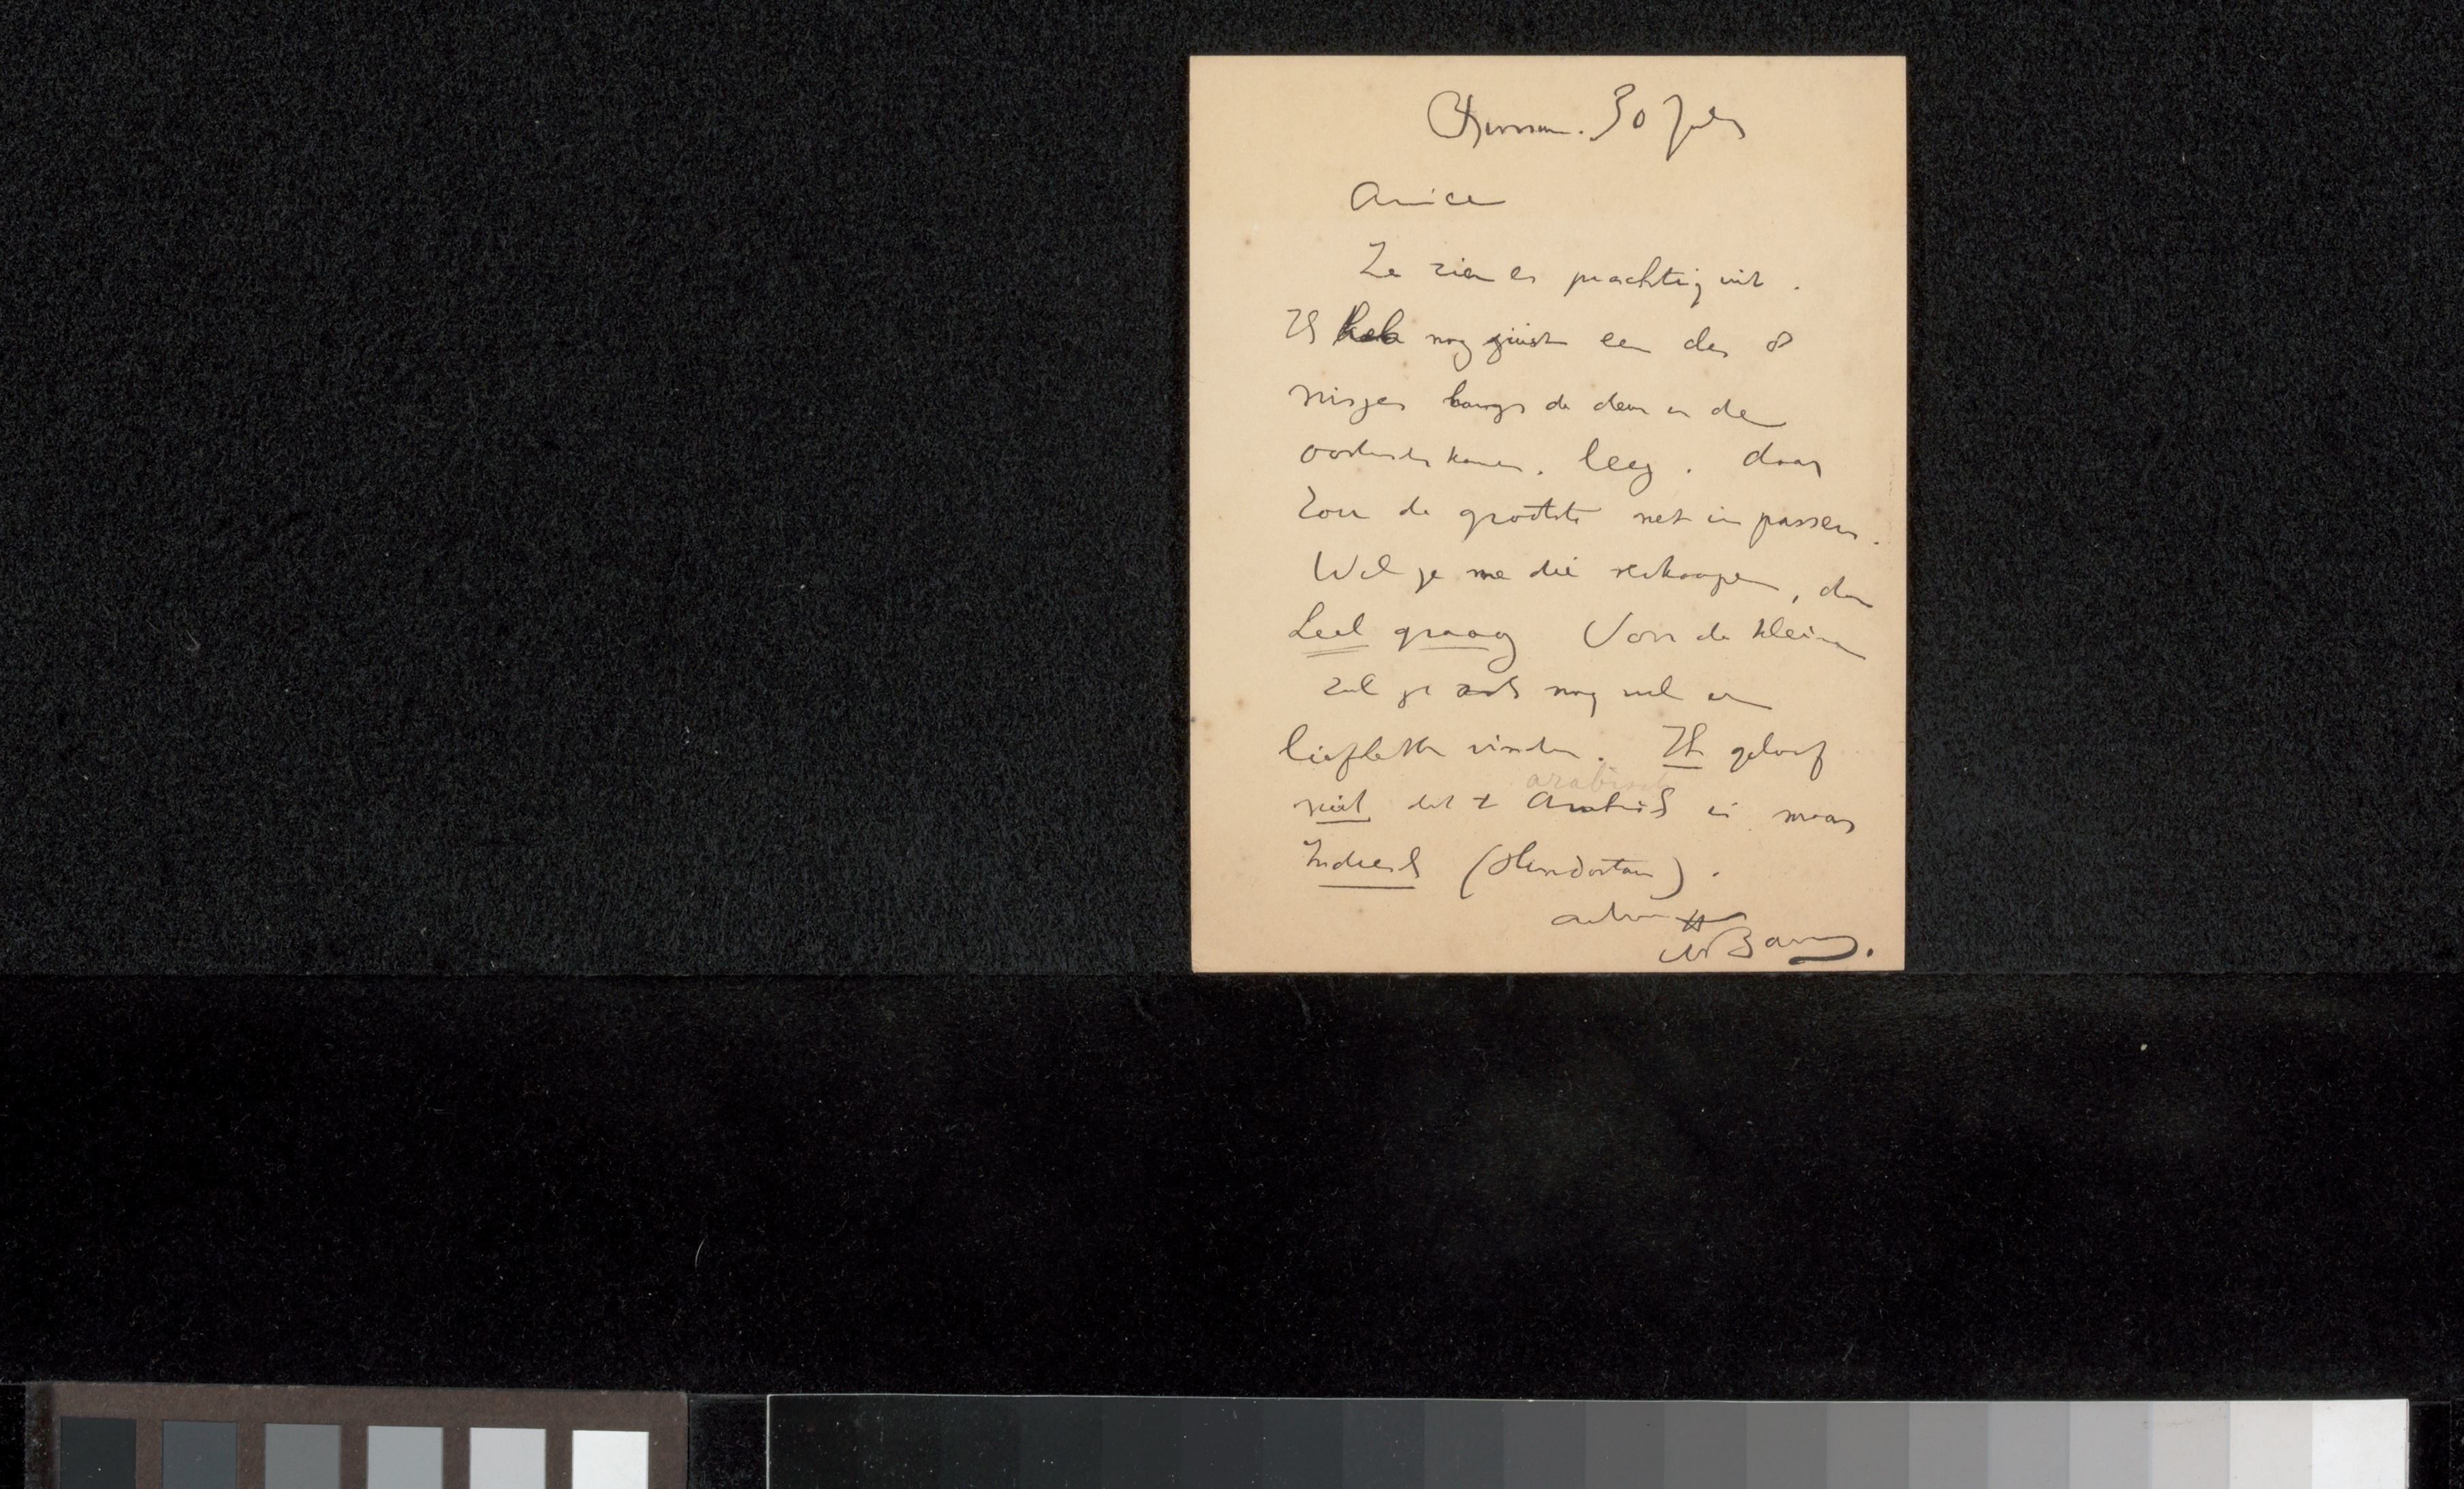 30 July
Amice
Ze zien er prachtig uit.
Ik heb nog juist een der 8
nisjes langs de deur in de
oostersche kamer. leeg. daar
Zou de grootste net in passen.
Wil je me die verkoopen, dan
heel graag Voor de kleine
zul je ook nog wel een
liefhebber vinden. Ik geloof
niet dat 't Arabisch is maar
arabisch
Indiesch (Hindostan).